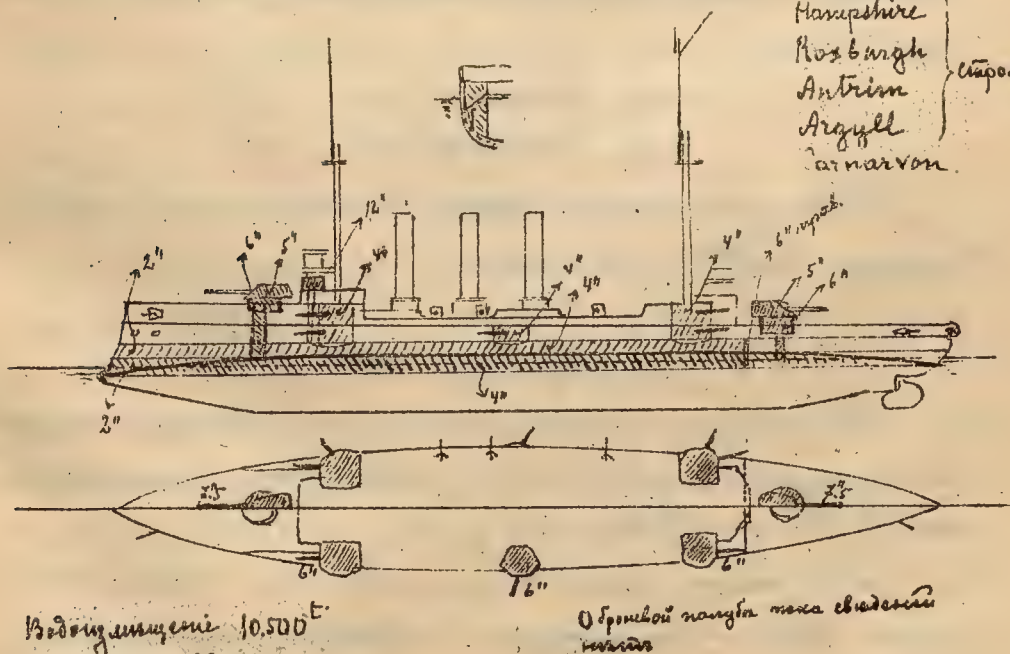 Hampshire
Roxburgh
Antrim
Argyll
Carnarvon
12"
6"
5"
2"
4"
4"
4"
4"
6"
5"
6"
4"
2"
7.5"
7.5"
6"
6"
6"
Водоизмѣщеніе 10.500 t.
О броневой палубѣ пока свѣдѣній
нѣтъ